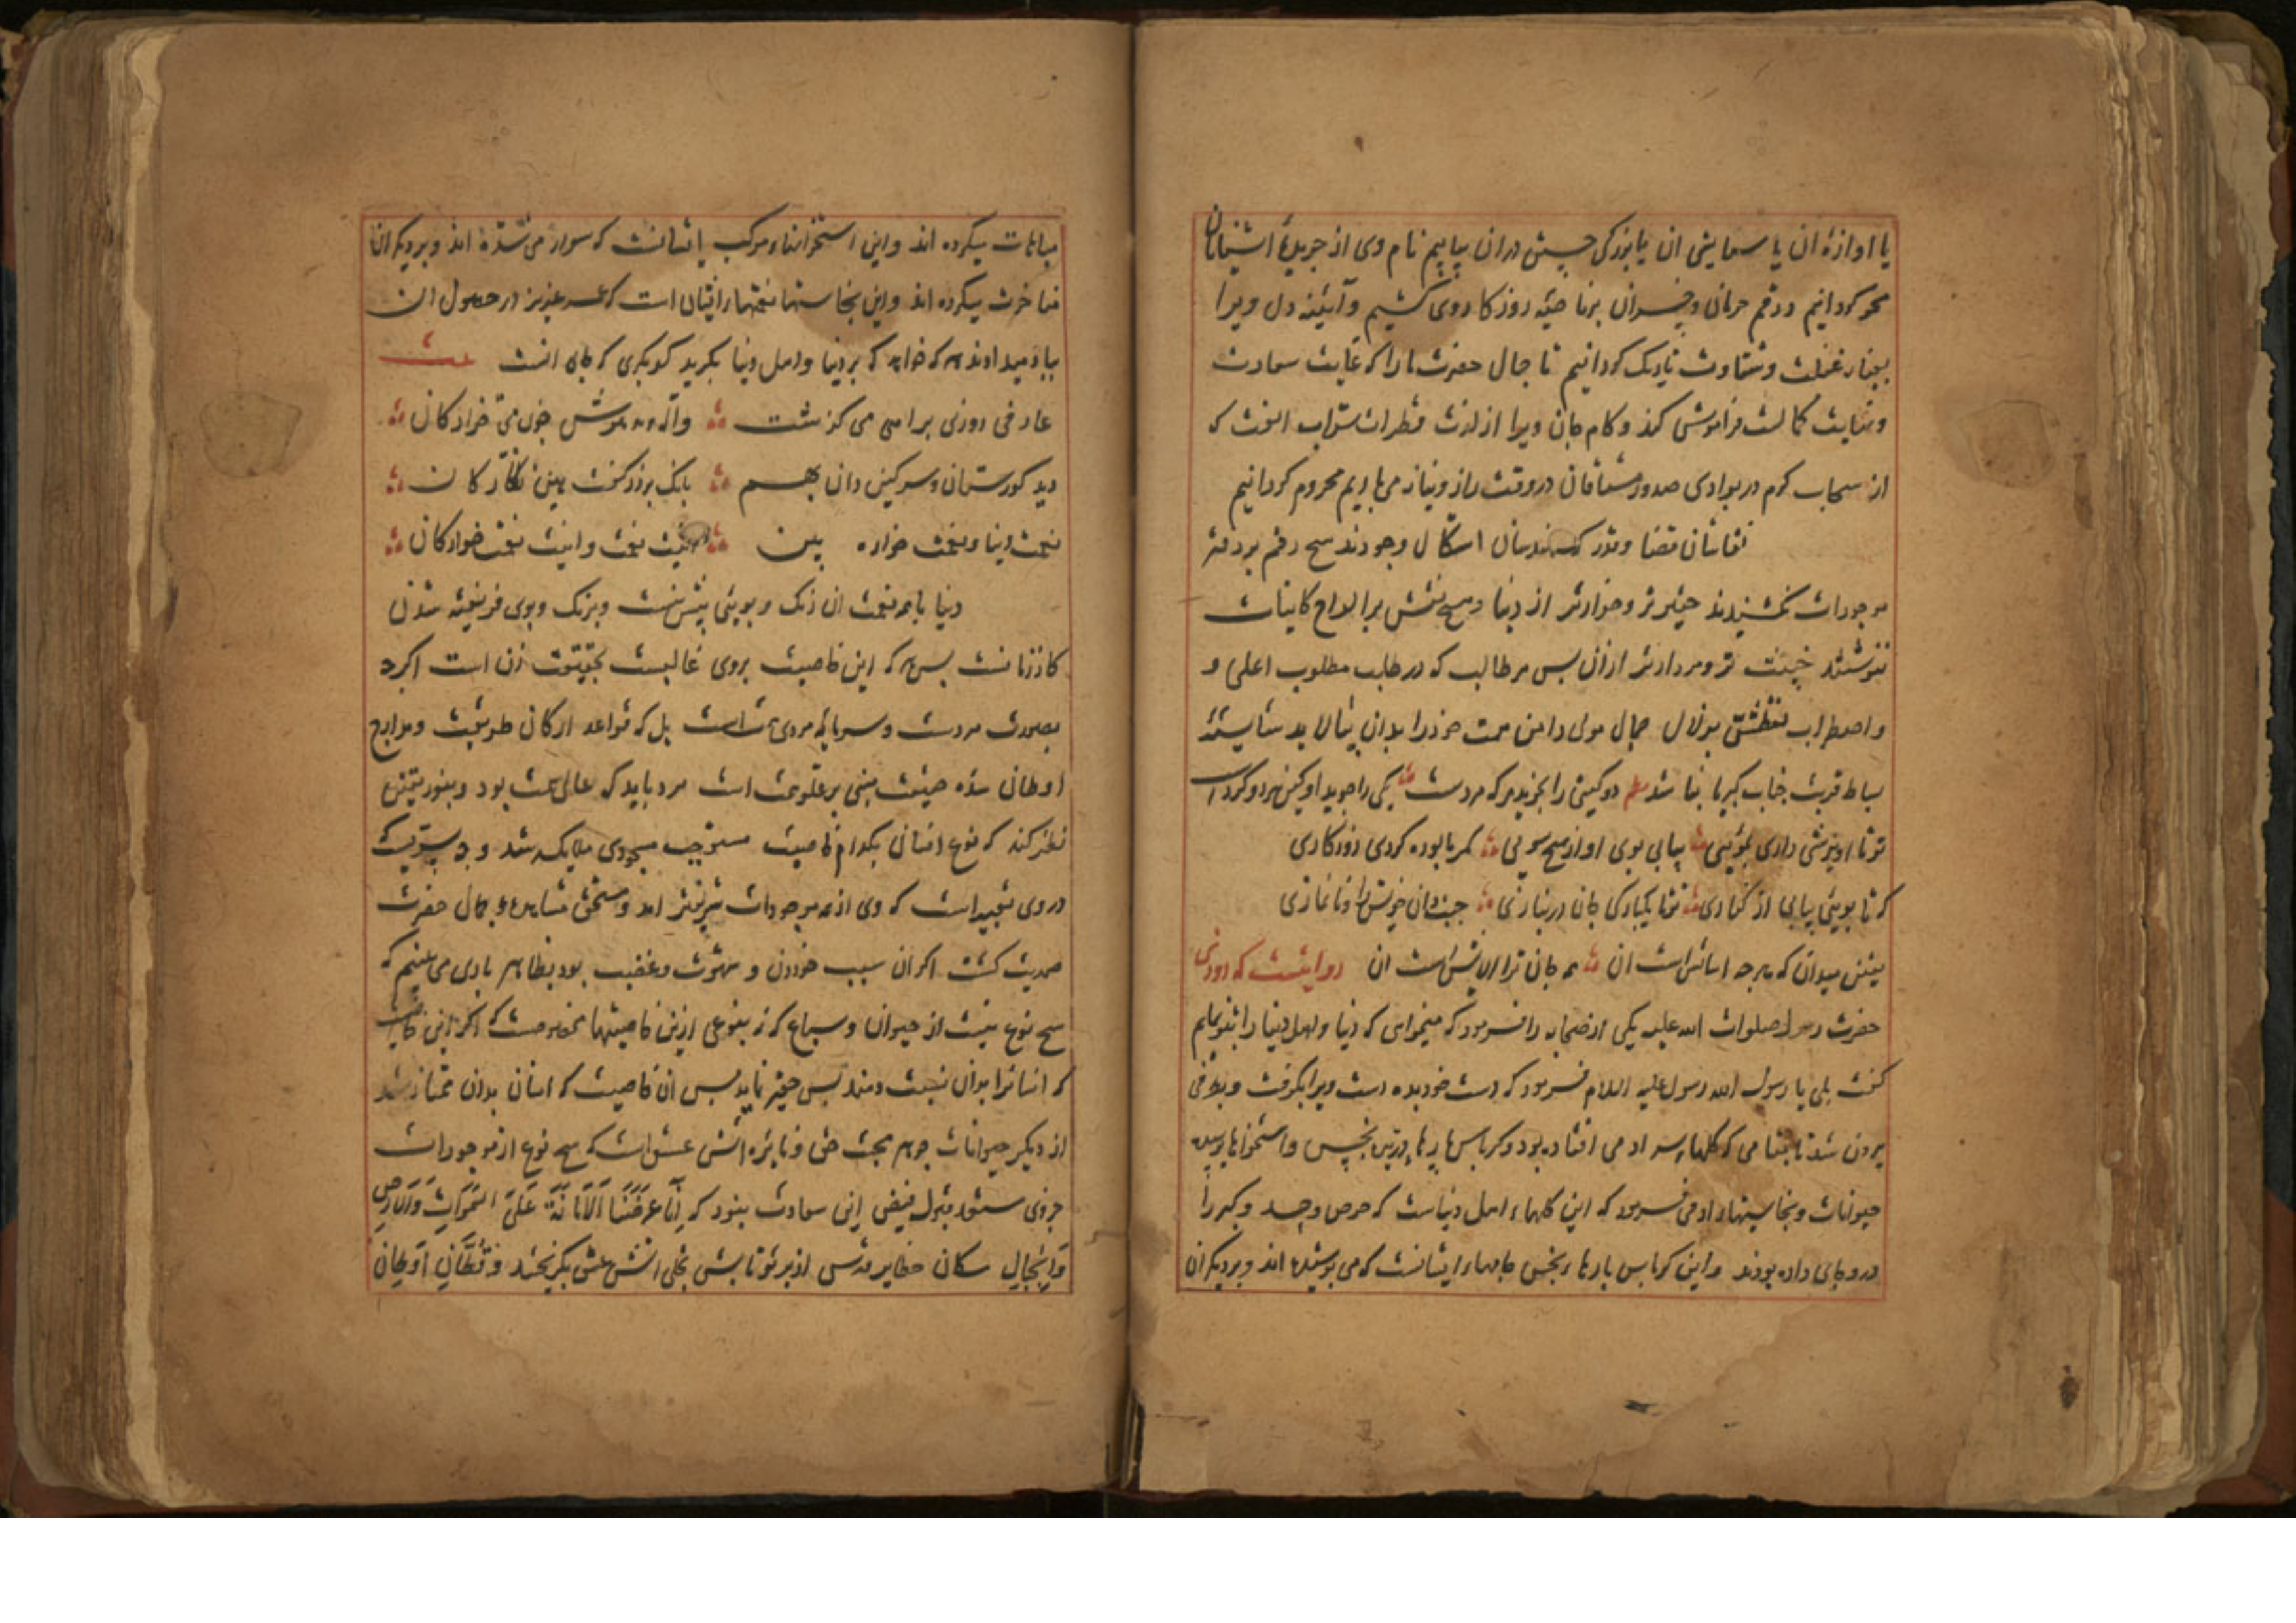 یا اوازهٔ ان یا ستایش ان یا بزرگی جستن دران بیابیم نام وی از جریدهٔ اشنایان
محو کردانیم ورقم حرمان وخسران برناصیه روزکار وی کشیم وآئینه دل ویرا
بغبار غفلت وشقاوت تاریک کردانیم تا جمال حضرت مارا که غایت سعادت
ونهایت کمالست فراموش کند وکام جان ویرا از لذت قطرات شراب الفت که
از سحاب کرم در بوادی صدور مشتاقان در وقت راز ونیاز می باریم محروم کردانیم
نقاشان قضا وقدر که مهندسان اشکال وجودند هیچ رقم بر دفتر
موجودات نکشیدند حقیرتر وخوارتر از دنیا وهیچ نقش بر الواح کاینات
ننوشتند خبیث تر ومردارتر ازان بس هر طالب که در طلب مطلوب اعلی و
واضطراب تعطش بزلال جمال مولی دامن همت خودرا بدان بیالاید شایسته
بساط قربت جناب کبریا نباشد دو کیتی را نجوید هرکه مردست یکی را جوید او کین هر دو کردست
تو تا اویزشی داری بموئی بیابی بوی او از هیچ سوئی
که تا بوئی بیابی از کناری تو تا یکبارکی جان درنبازی جنب دان خویش را ونانمازی
یقین میدان که هرچه اسایش است ان همه جان ترا الایش است ان روایتست که روزی
حضرت رسول صلوات الله علیه یکی از صحابه را فرمود که میخواهی که دنیا واهل دنیا را بتو نمایم
کفت بلی یا رسول الله رسول علیه السلام فرمود که دست خود بده دست ویرا بکرفت وبطرفی
بیرون شد تا بمقامی که کلهای سر ادمی افتاده بود وکرباس پارها ریزیده نجس واستخوانها پوسیده
حیوانات ونجاستهاء ادمی فرمود که این کلهاء اهل دنیاست که حرص وحسد وکبر را
درو جای داده بودند واین کرباس پارهاء نجس جامهاء ایشانست که می پوشیده اند وبر دیکران
مباهات میکرده اند واین استخوانها مرکب ایشانست که سوار می شده اند وبر دیکران
مفاخرت میکرده اند واین نجاستها نعمتهاء ایشان است که عمر عزیز در حصول ان
بباد میدادند هرکه خواهد که بر دنیا واهل دنیا بکرید کو بکری که جای انست
عارفی روزی براهی می کذشت واله ومدهوش چون می خوارکان
دید کورستان وسرکین دان بهم بانک برزد کفت هین نظارکان
نعمت دنیا ونعمت خواره بین اینت نعمت واینت نعمت خوارکان
دنیا با همه نعمت ان رنک وبوئی بیش نیست وبرنک وبوی فریفته شدن
کار زنانست بس هرکه این خاصیت بروی غالبست بحقیقت زن است اکرچه
بصورت مردست وسرمایه مردی همت است بل که قواعد ارکان طریقت ومدارج
اوطان سده حقیقت مبنی بر علو همت است مرد باید که عالی همت بود وبنور یقین
نظر کند که نوع انسانی بکدام خاصیت مستوجب مسجودی ملایک شد وچه سریست که
دروی تعبیه است که وی از همه موجودات شریفتر امد ومستحق مشاهدهٔ جمال حضرت
صمدیت کشت اکر ان سبب خوردن وشهوت وغضب بود بظاهر باری می بینیم که
هیچ نوع نیست از حیوان وسباع که نه بنوعی ازین خاصیتها مخصوصست که اکر این خاصیت
که انسانرا بدان نسبت دهند بس حقیر نماید بس ان خاصیت که انسان بدان ممتاز شد
از دیکر حیوانات جوهر محبت حق ونایره اتش عشق است که هیچ نوع از موجودات
جز وی مستعد قبول فیض این سعادت نبود که اِنَّا عَرَضْنَا الْاَمَانَةَ عَلَی السَّمَوَاتِ وَالْاَرْضِ
وَالْجِبَالِ سکان حظایر قدس از پرتو تابش تجلی اتش عشق بکریختند وقُطَّانِ اَوْطَانِ